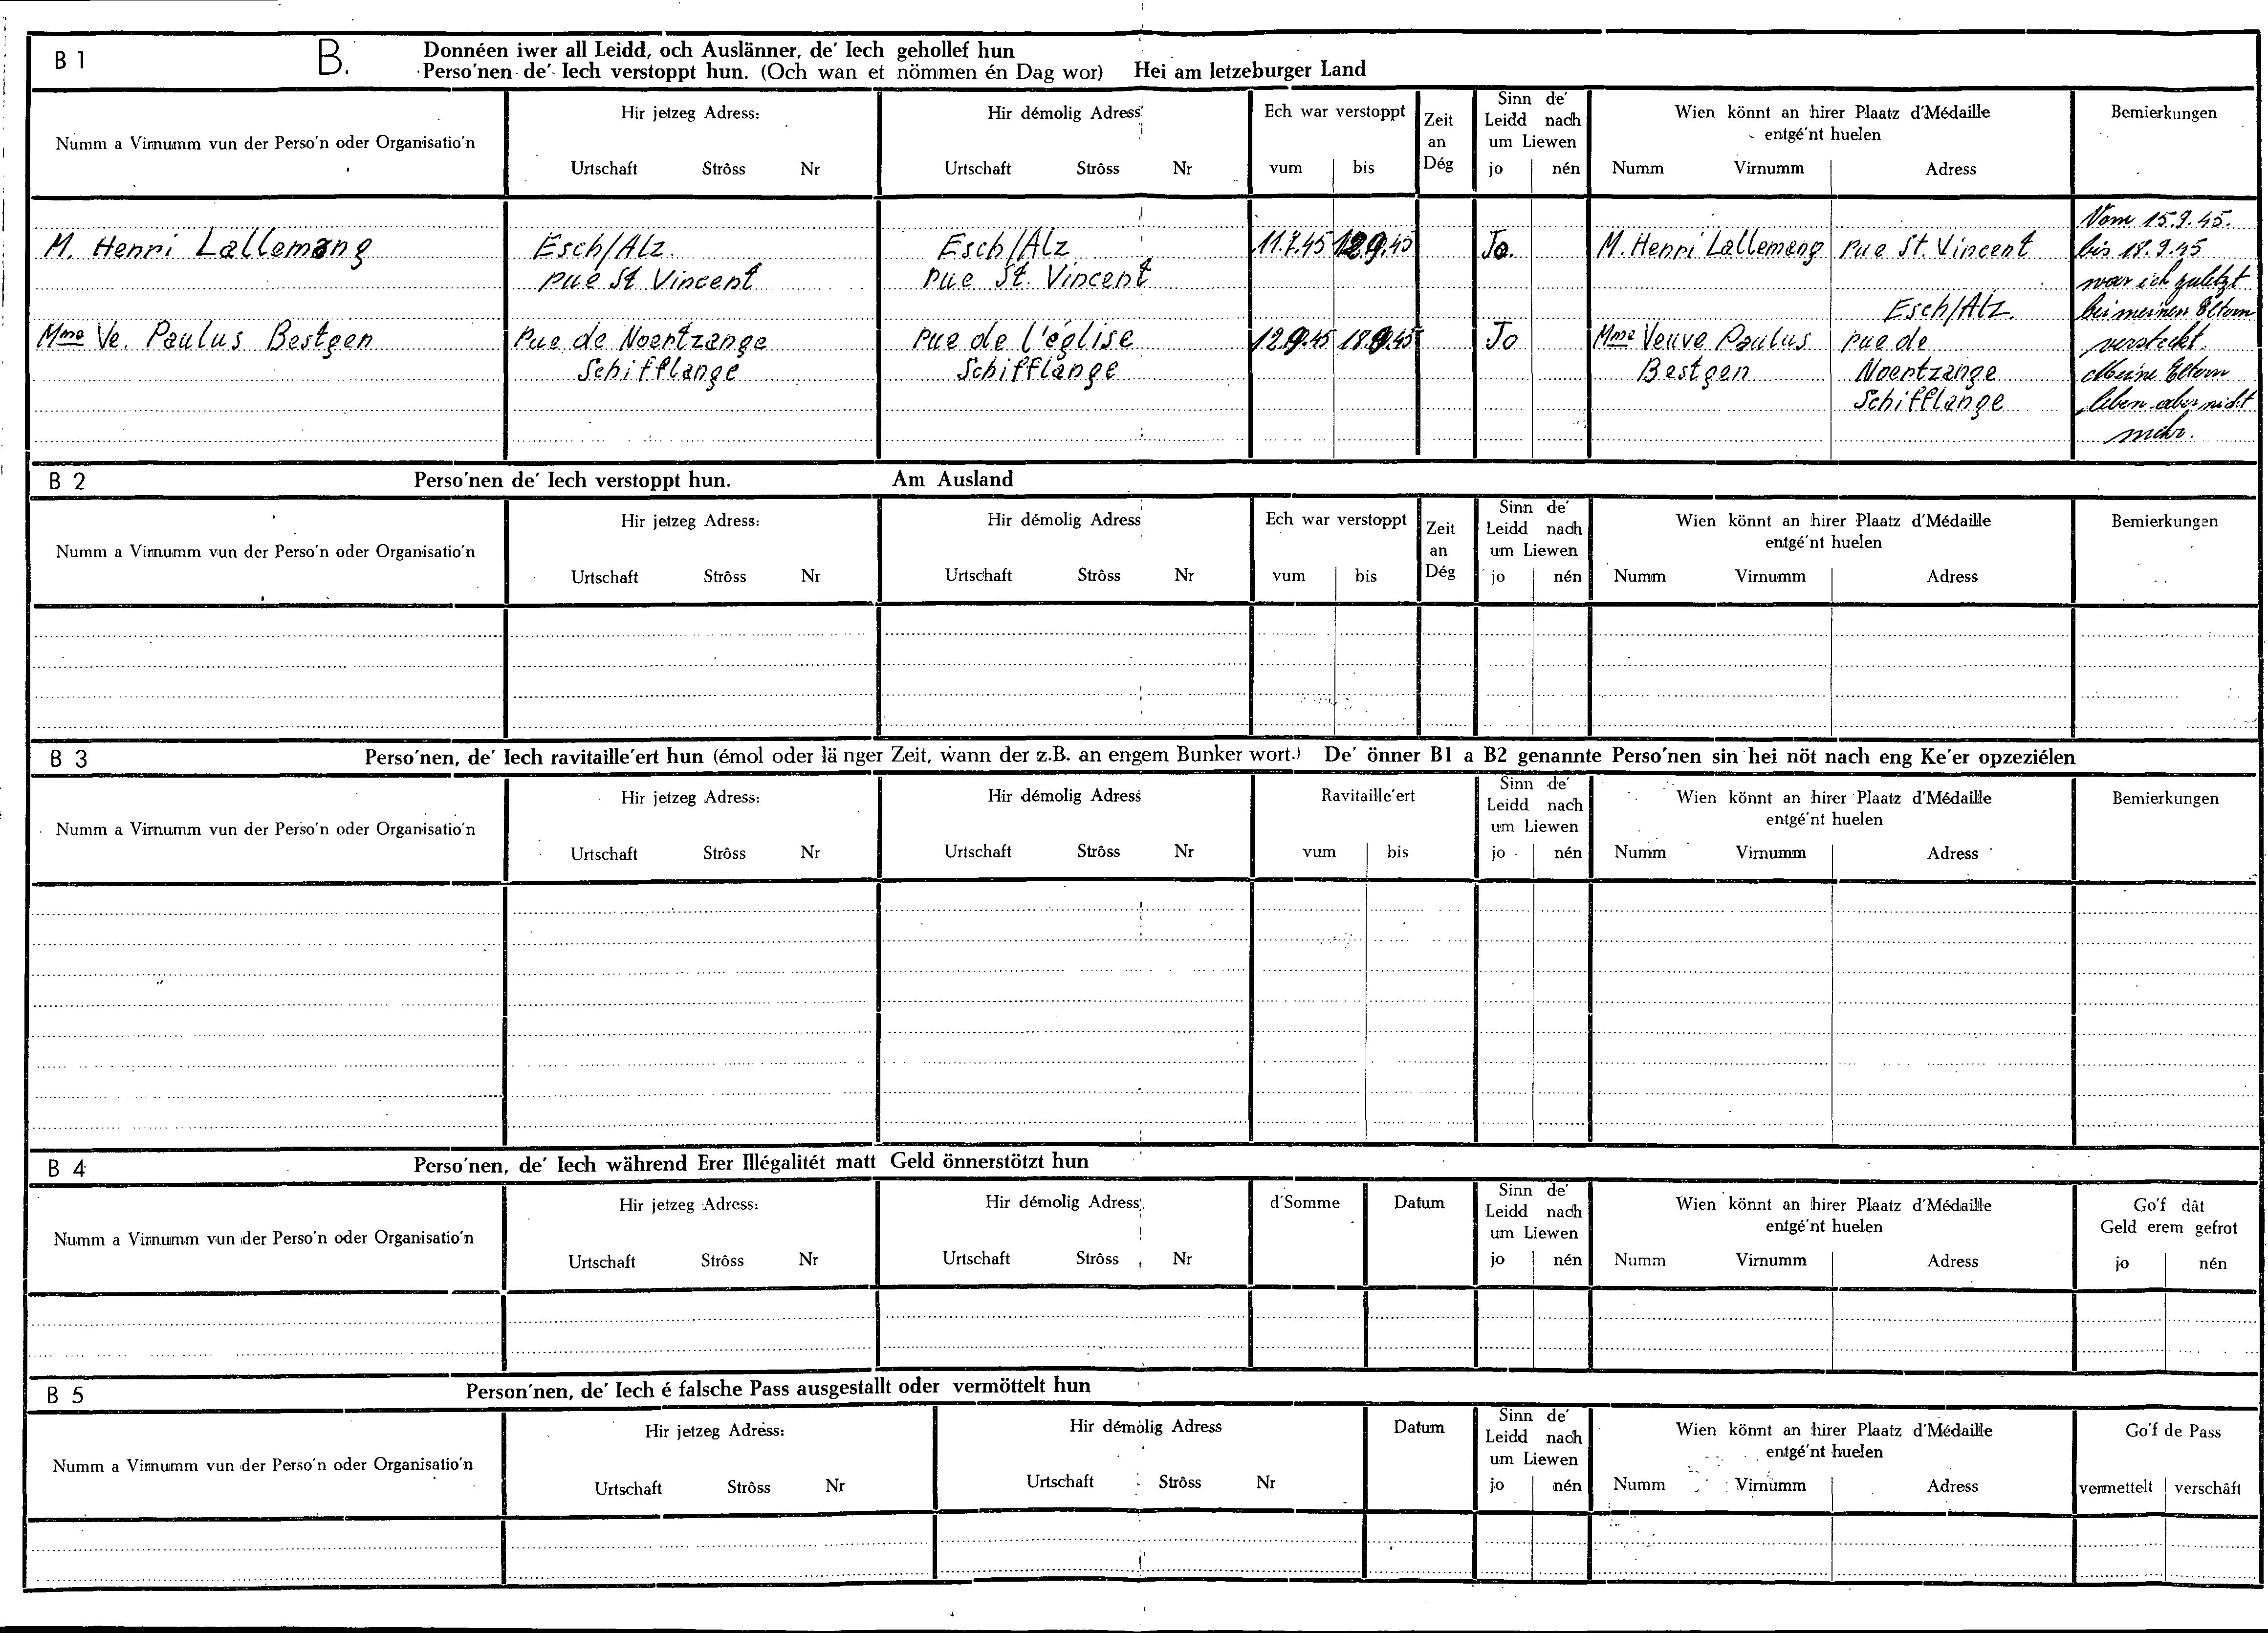 B 1
B.
Donnéen iwer all Leidd, och Auslänner, de' Iech gehollef hun
Perso'nen de' Iech verstoppt hun. (Och wan et nömmen én Dag wor) Hei am letzeburger Land
Numm a Virnumm vun der Perso'n oder Organisatio'n
Hir jetzeg Adress:
Urtschaft Strôss Nr
Hir démolig Adress
Urtschaft Strôss Nr
Ech war verstoppt
vum bis
Zeit
an
Dég
Sinn de'
Leidd nach
um Liewen
jo nén
Wien könnt an hirer Plaatz d'Médaille
entgé'nt huelen
Numm Virnumm Adress
Bemierkungen
M. Henri Lallemang
Esch/Alz.
rue St Vincent
Esch/Alz
rue St. Vincent
11.7.45 12.9.45
Jo.
M. Henri Lallemang
rue St. Vincent
Esch/Alz.
Mme Ve. Paulus Bestgen
rue de Noertzange
Schifflange
rue de l'église
Schifflange
12.9.45 18.9.45
Jo
Mme Veuve Paulus
Bestgen
rue de
Noertzange
Schifflange
Vom 15.9.45.
bis 18.9.45
war ich zuletzt
bei meinen Eltern
versteckt.
Meine Eltern
leben aber nicht
mehr.
B 2
Perso'nen de' Iech verstoppt hun. Am Ausland
Numm a Virnumm vun der Perso'n oder Organisatio'n
Hir jetzeg Adress:
Urtschaft Strôss Nr
Hir démolig Adress
Urtschaft Strôss Nr
Ech war verstoppt
vum bis
Zeit
an
Dég
Sinn de'
Leidd nach
um Liewen
jo nén
Wien könnt an hirer Plaatz d'Médaille
entgé'nt huelen
Numm Virnumm Adress
Bemierkungen
B 3
Perso'nen, de' Iech ravitaille'ert hun (émol oder lä nger Zeit, wann der z.B. an engem Bunker wort.) De' önner B1 a B2 genannte Perso'nen sin hei nöt nach eng Ke'er opzeziélen
Numm a Virnumm vun der Perso'n oder Organisatio'n
Hir jetzeg Adress:
Urtschaft Strôss Nr
Hir démolig Adress
Urtschaft Strôss Nr
Ravitaille'ert
vum bis
Sinn de'
Leidd nach
um Liewen
jo nén
Wien könnt an hirer Plaatz d'Médaille
entgé'nt huelen
Numm Virnumm Adress
Bemierkungen
B 4
Perso'nen, de' Iech während Erer Illégalitét matt Geld önnerstötzt hun
Numm a Virnumm vun der Perso'n oder Organisatio'n
Hir jetzeg Adress:
Urtschaft Strôss Nr
Hir démolig Adress
Urtschaft Strôss Nr
d'Somme
Datum
Sinn de'
Leidd nach
um Liewen
jo nén
Wien könnt an hirer Plaatz d'Médaille
entgé'nt huelen
Numm Virnumm Adress
Go'f dât
Geld erem gefrot
jo nén
B 5
Person'nen, de' Iech é falsche Pass ausgestallt oder vermöttelt hun
Numm a Virnumm vun der Perso'n oder Organisatio'n
Hir jetzeg Adress:
Urtschaft Strôss Nr
Hir démolig Adress
Urtschaft Strôss Nr
Datum
Sinn de'
Leidd nach
um Liewen
jo nén
Wien könnt an hirer Plaatz d'Médaille
entgé'nt huelen
Numm Virnumm Adress
Go'f de Pass
vermettelt verschâft